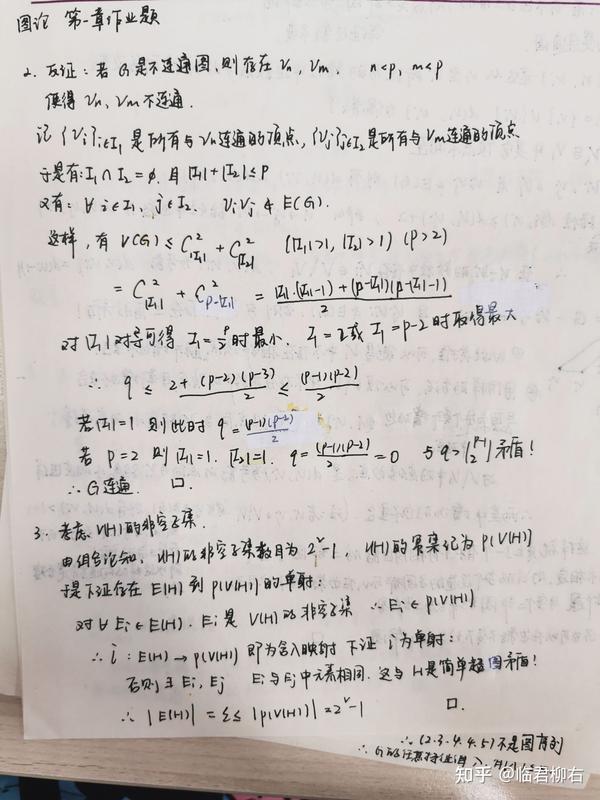 图论 第一章作业题
2. 反证：若 G 是不连通图，则存在 Vn, Vm, n<p, m<p
使得 Vn, Vm 不连通.
记 {Vi}i∈I₁ 是所有与 Vn 连通的顶点, {Vj}j∈I₂ 是所有与 Vm 连通的顶点
于是有: I₁ ∩ I₂ = ∅. 且 |I₁| + |I₂| ≤ p
又有: ∀ i∈I₁, j∈I₂. ViVj ∉ E(G).
这样, 有 V(G) ≤ C²|I₁| + C²|I₂| (|I₁|>1, |I₂|>1) (p>2)
= C²|I₁| + C²p-|I₁| = |I₁|·(|I₁|-1) + (p-|I₁|)(p-|I₁|-1) / 2
对 |I₁| 求导可得 I₁ = p/2 时最小. I₁ = 2 或 I₁ = p-2 时取得最大
∴ q ≤ 2+(p-2)(p-3) / 2 ≤ (p-1)(p-2) / 2
若 |I₁| = 1 则此时 q = (p-1)(p-2) / 2
若 p = 2 则 |I₁| = 1. |I₂| = 1. q = (p-1)(p-2) / 2 = 0 与 q > (p-1 2) 矛盾!
∴ G 连通. □.
3. 考虑 V(H) 的非空子集.
由组合论知, V(H) 的非空子集数目为 2ᵛ-1, V(H) 的幂集记为 P(V(H))
于是下证存在 E(H) 到 P(V(H)) 的单射:
对 ∀ Ei ∈ E(H). Ei 是 V(H) 的非空子集 ∴ Ei ∈ P(V(H))
∴ i: E(H) → P(V(H)) 即为含入映射 下证 i 为单射:
否则 ∃ Ei, Ej Ei 与 Ej 中元素相同. 这与 H 是简单超图矛盾!
∴ |E(H)| = ε ≤ |P(V(H))| = 2ᵛ-1 □.
∴ (2.3.4.4.5) 不是图序列
知乎 @临君柳右